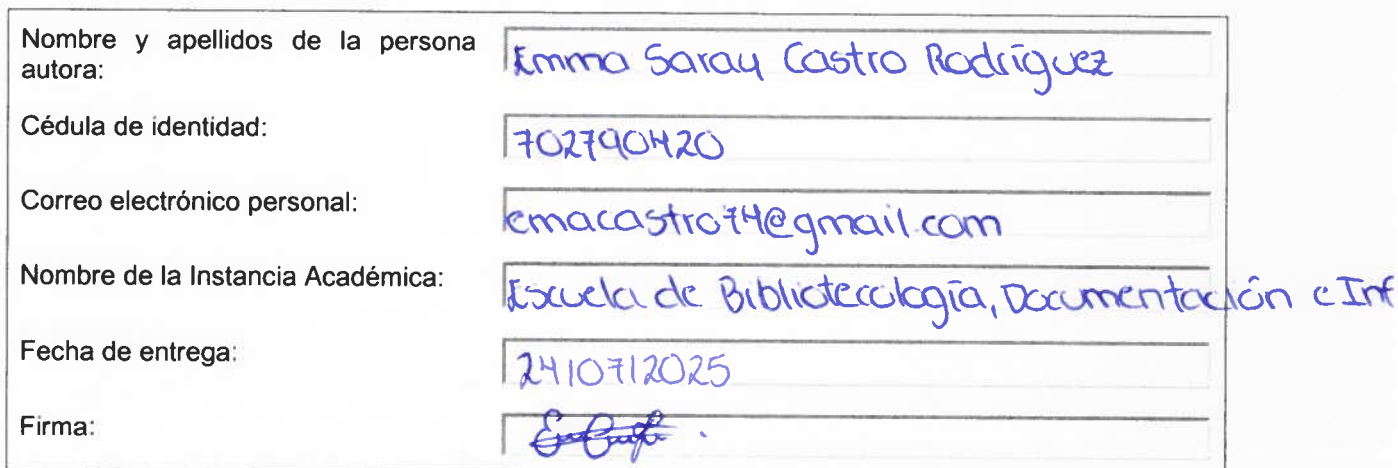 Nombre y apellidos de la persona
autora:
Emma Saray Castro Rodríguez
Cédula de identidad:
702790420
Correo electrónico personal:
emacastro74@gmail.com
Nombre de la Instancia Académica:
Escuela de Bibliotecología, Documentación e Inf
Fecha de entrega:
24/07/2025
Firma: